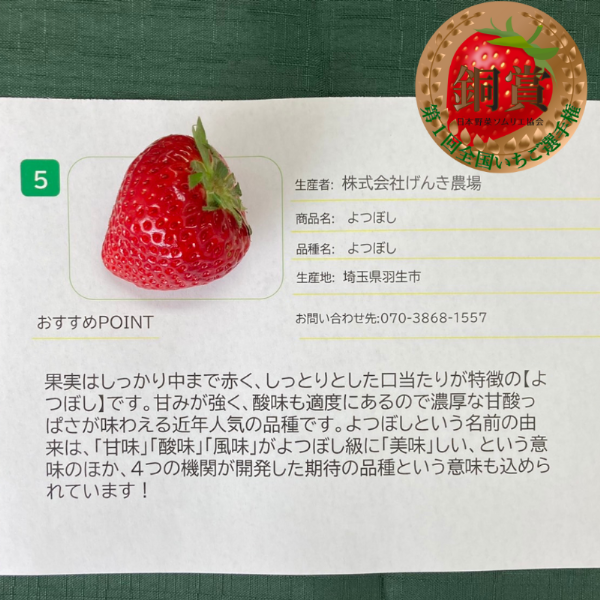 銅賞
日本野菜ソムリエ協会
第1回全国いちご選手権
5
生産者: 株式会社げんき農場
商品名: よつぼし
品種名: よつぼし
生産地: 埼玉県羽生市
おすすめPOINT
お問い合わせ先:070-3868-1557
果実はしっかり中まで赤く、しっとりとした口当たりが特徴の【よ
つぼし】です。甘みが強く、酸味も適度にあるので濃厚な甘酸っ
ぱさが味わえる近年人気の品種です。よつぼしという名前の由
来は、「甘味」「酸味」「風味」がよつぼし級に「美味」しい、という意
味のほか、4つの機関が開発した期待の品種という意味も込めら
れています！